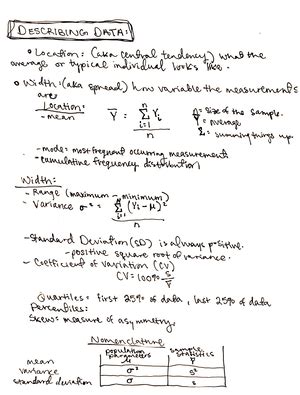 DESCRIBING DATA:
• Location: (aka central tendency) what the
average or typical individual looks like.
• Width: (aka spread) how variable the measurements
are
Location:
- mean Ȳ = Σ(i=1 to n) Yᵢ / n
n = size of the sample.
Ȳ = average
Σ = summing things up
- mode: most frequent occurring measurement
- (cumulative frequency distribution)
Width:
- Range (maximum - minimum)
- Variance σ² = Σ(i=1 to n) (Yᵢ - μ)² / n
- Standard Deviation (SD) is always positive.
- positive square root of variance.
- Coefficient of variation (CV)
CV = 100% s/Ȳ
Quartiles = first 25% of data, last 25% of data
Percentiles:
Skew = measure of asymmetry.
Nomenclature
population parameters sample statistics
mean μ Ȳ
variance σ² s²
standard deviation σ s